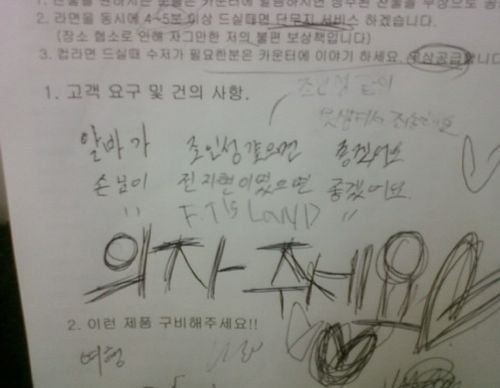 2. 라면을 동시에 4~5분 이상 드실때면 단무지 서비스 하겠습니다.
(장소 협소로 인해 자그만한 저의 불편 보상책입니다)
3. 컵라면 드실때 수저가 필요한분은 카운터에 이야기 하세요.
1. 고객 요구 및 건의 사항.
알바가 조인성 같으면 좋겠어요
손님이 전지현이었으면 좋겠어요.
" F.T ISLAND "
의자 주세요
2. 이런 제품 구비해주세요!!
여형